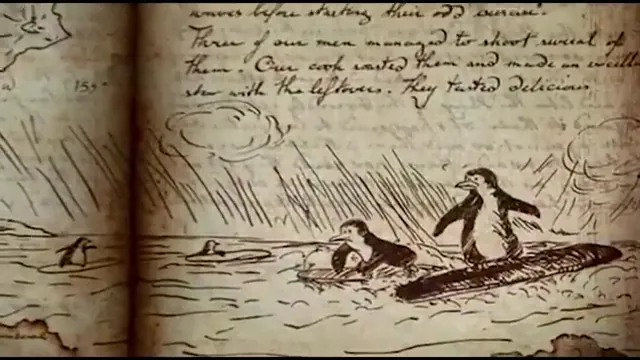 waves before starting their odd exercise.
Three of our men managed to shoot several of
them. Our cook roasted them and made an excelle
stew with the leftovers. They tasted delicious
155°